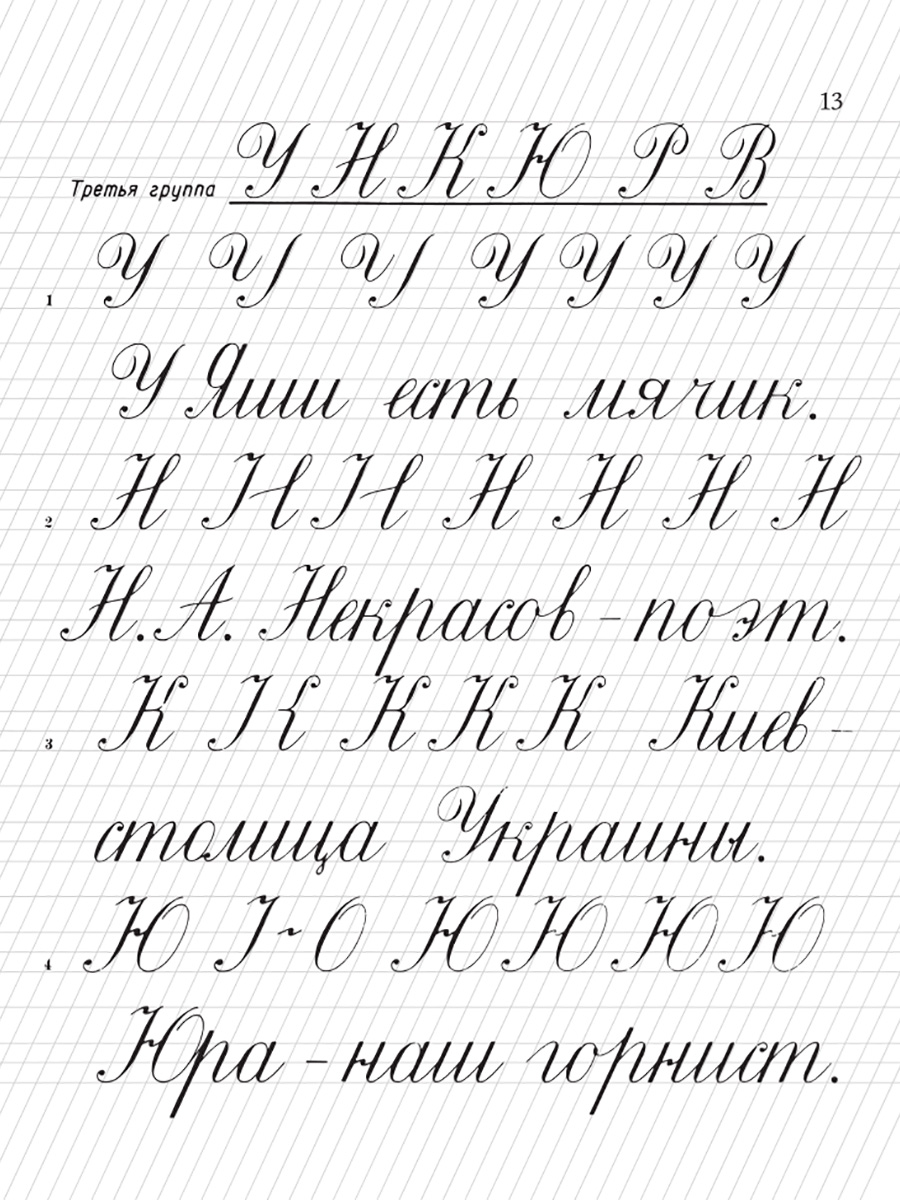 13
Третья группа У Н К Ю Р В
1 У У У У У У У
У Яши есть мячик.
2 Н Н Н Н Н Н Н
Н. А. Некрасов – поэт.
3 К К К К К Киев –
столица Украины.
4 Ю І ~ О Ю Ю Ю Ю
Юра – наш горнист.